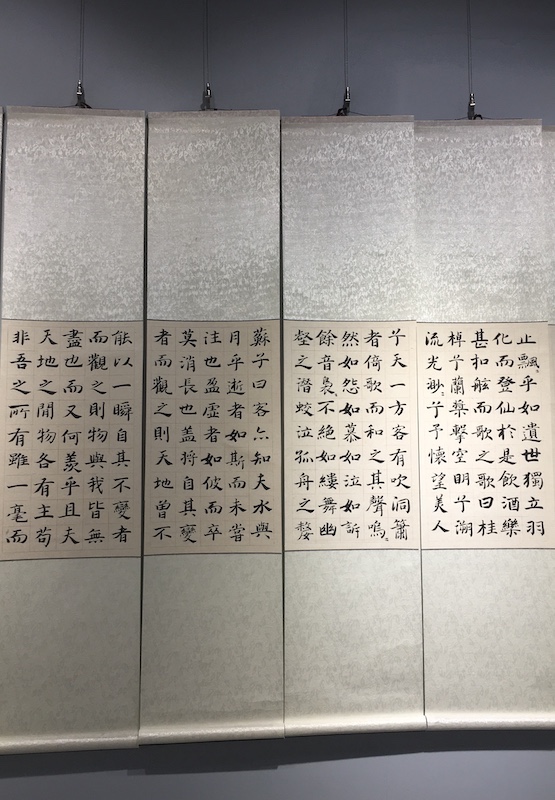 止飄乎如遺世獨立羽
化而登仙於是飲酒樂
甚扣舷而歌之歌曰桂
棹兮蘭槳擊空明兮溯
流光渺〻兮予懷望美人
兮天一方客有吹洞簫
者倚歌而和之其聲嗚〻
然如怨如慕如泣如訴
餘音裊〻不絕如縷舞幽
壑之潛蛟泣孤舟之嫠
蘇子曰客亦知夫水與
月乎逝者如斯而未嘗
往也盈虛者如彼而卒
莫消長也盖將自其變
者而觀之則天地曾不
能以一瞬自其不變者
而觀之則物與我皆無
盡也而又何羨乎且夫
天地之間物各有主苟
非吾之所有雖一毫而